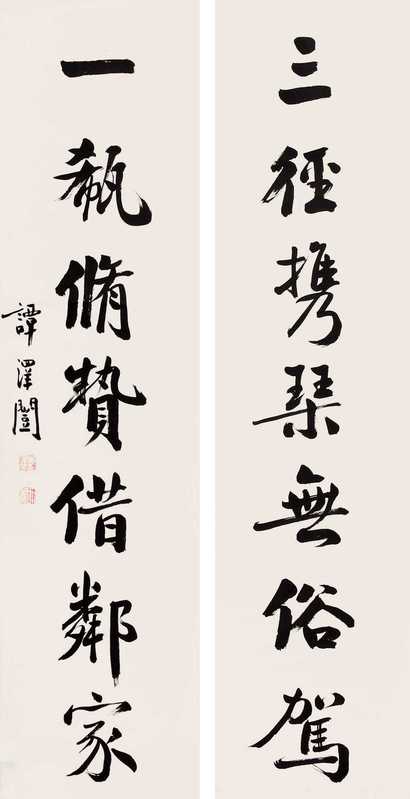 三徑携琴無俗駕
一瓻脩贄借鄰家
譚澤闓